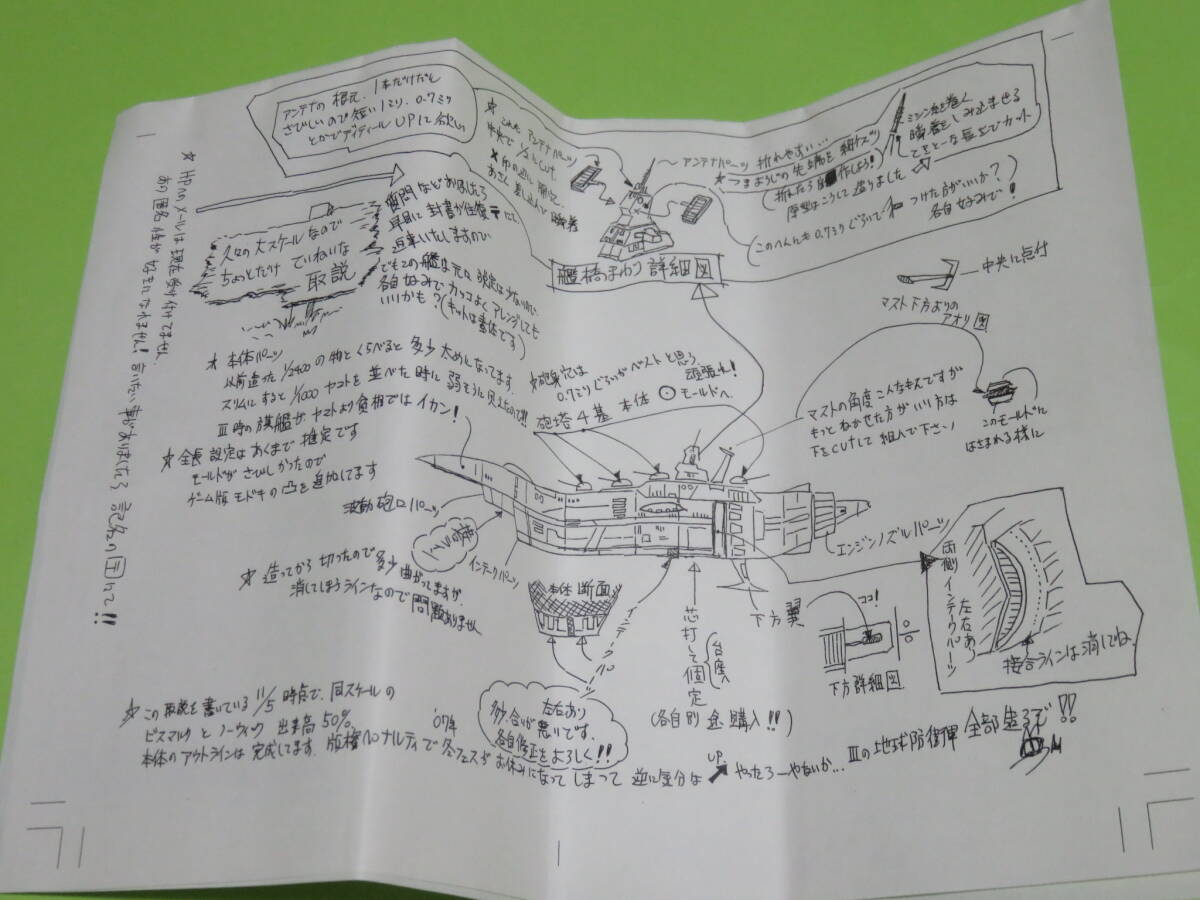 アンテナの根元、1本だけだと
さびしいので短い1ミリ、0.7ミリ
とかでディティールUPして欲しい
久々の大スケールなので
ちょっとだけ ていねいな
取説
質問などありましたら
早目に封書か往復〒にて、
返事いたしますので
でもこの艦は元々設定は少ないので
各自好みでカッコよくアレンジしても
いいかも?(キットは素体です)
アンテナパーツ
中央で
CUT
〜アンテナパーツ 折れやすい…
☆つまようじの先端を
折れたら自作しよう!
原型はこうして造りました
ミシン糸を巻く
瞬着をしみ込ませる
てきとーな長さでカット
このへんにも0.7ミリぐらいで
つけた方がいいか??
各自好みで!
艦橋まわり詳細図
中央に点付
マスト下方よりの
アオリ図
マストの角度こんなもんですが
もっとねかせた方がいい方は
下をCUTして組んで下さい
このモールドに
はさまれる様に
☆HPへのメールは現在受け付けてません
匿名
言いたい事がありましたら記名の〒にて!!
☆本体パーツ
以前造った1/2400の物とくらべると多少太めになってます。
スリムにすると1/1000ヤマトを並べた時に弱そうに見えたので!!
Ⅲ時の旗艦がヤマトより貧相ではイカン!
☆全長設定はあくまで推定です
モールドがさびしかったので
ゲーム版モドキの凸を追加してます
☆砲身穴は
0.7ミリぐらいがベストと思う、
頑張れ!
砲塔4基 本体⊙モールドへ
波動砲口パーツ
インテークパーツ
エンジンノズルパーツ
☆造ってから切ったので多少曲がってますが、
消してしまうラインなので問題ありません
本体断面
インテークパーツ
芯打して固定
(台座
(各自別途購入!!)
下方翼
ココ!
下方詳細図
両側インテークパーツ
左右あり
接合ラインは消してね。
左右あり
多少合いが悪いです。
各自修正をよろしく!!
☆この取説を書いている11/5時点で、同スケールの
ビスマルクとノーウィック 出来高50%、
'07冬
本体のアウトラインは完成してます。版権ペナルティで冬フェスがお休みになってしまって 逆に気分は
UP.
やったろーやないか… Ⅲの地球防衛軍 全部造るぞ!!